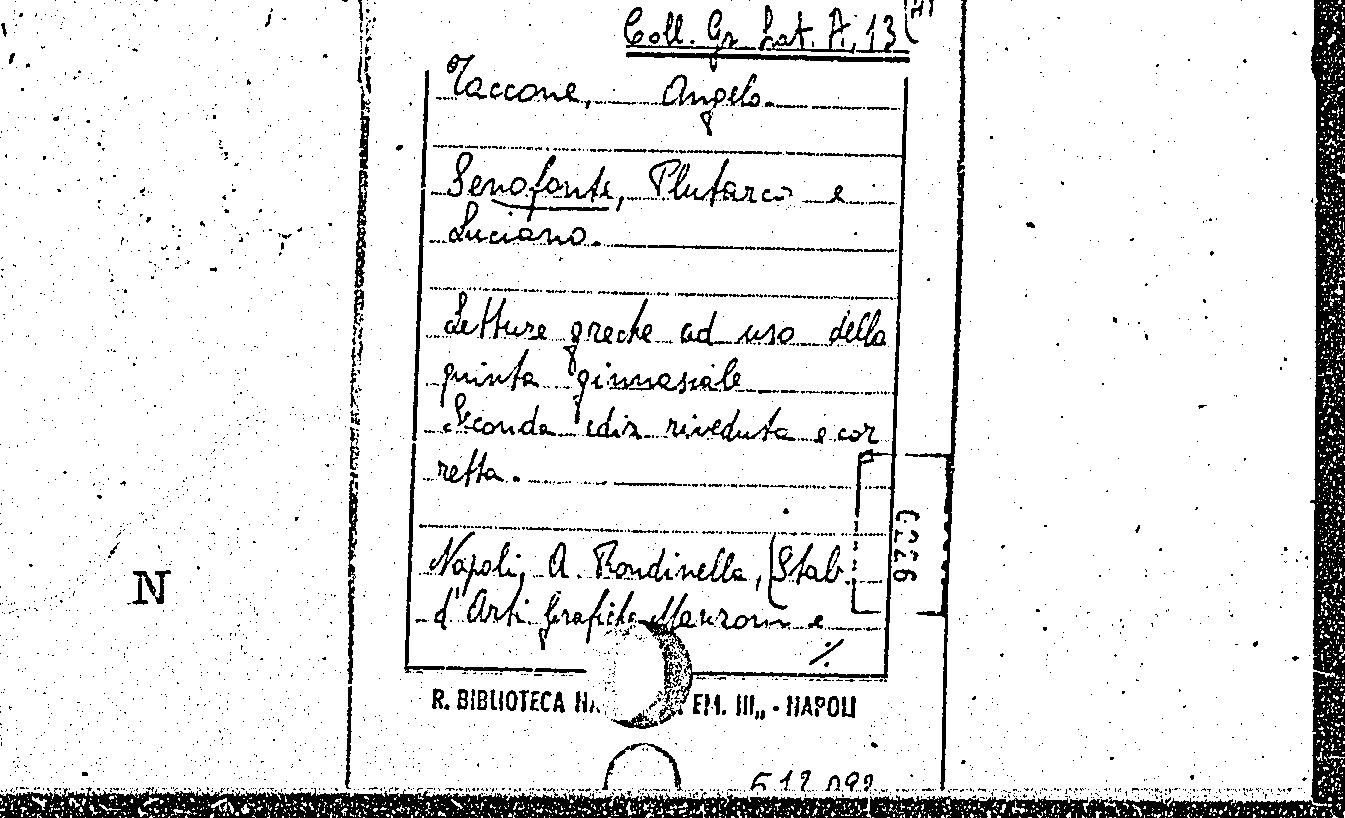 Coll. Gr. Lat. A, 13
Taccone, Angelo.
Senofonte, Plutarco e
Luciano.
Letture greche ad uso della
quinta ginnasiale
Seconda ediz riveduta e cor
retta.
Napoli, A. Rondinella, (Stab.
d'Arti Grafiche Manzoni e
./.
R. BIBLIOTECA NA EM. III„ - NAPOLI
N